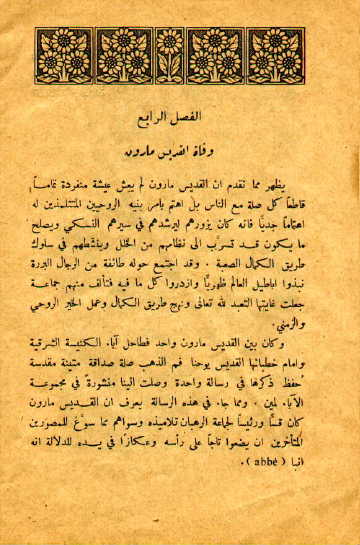 الفصل الرابع
وفاة القديس مارون
يظهر مما تقدم ان القديس مارون لم يعِش عيشة منفردة تماماً
قاطعاً كل صلة مع الناس بل اهتم بامر بنيه الروحيين المتتلمذين له
اهتماماً جدياً فانه كان يزورهم ليرشدهم في سيرهم النسكي ويصلح
ما يكون قد تسرّب الى نظامهم من الخلل وينشّطهم في سلوك
طريق الكمال الصعبة . وقد اجتمع حوله طائفة من الرجال البررة
نبذوا اباطيل العالم ظهريّاً وازدروا كل ما فيه فتألف منهم جماعة
جعلت غايتها التعبد لله تعالى ونهج طريق الكمال وعمل الخير الروحي
والزمني .
وكان بين القديس مارون واحد فطاحل آباء الكنيسة الشرقية
وامام خطبائها القديس يوحنا فم الذهب صلة صداقة متينة مقدسة
حُفظ ذكرها في رسالة واحدة وصلت الينا منشورة في مجموعة
الآباء لمين . ومما جاء في هذه الرسالة يعرف ان القديس مارون
كان قسّاً ورئيساً لجماعة الرهبان تلاميذه وسواهم مما سوّغ للمصورين
المتأخرين ان يضعوا تاجاً على رأسه وعكازاً في يده للدلالة انه
انبا (abbé) .